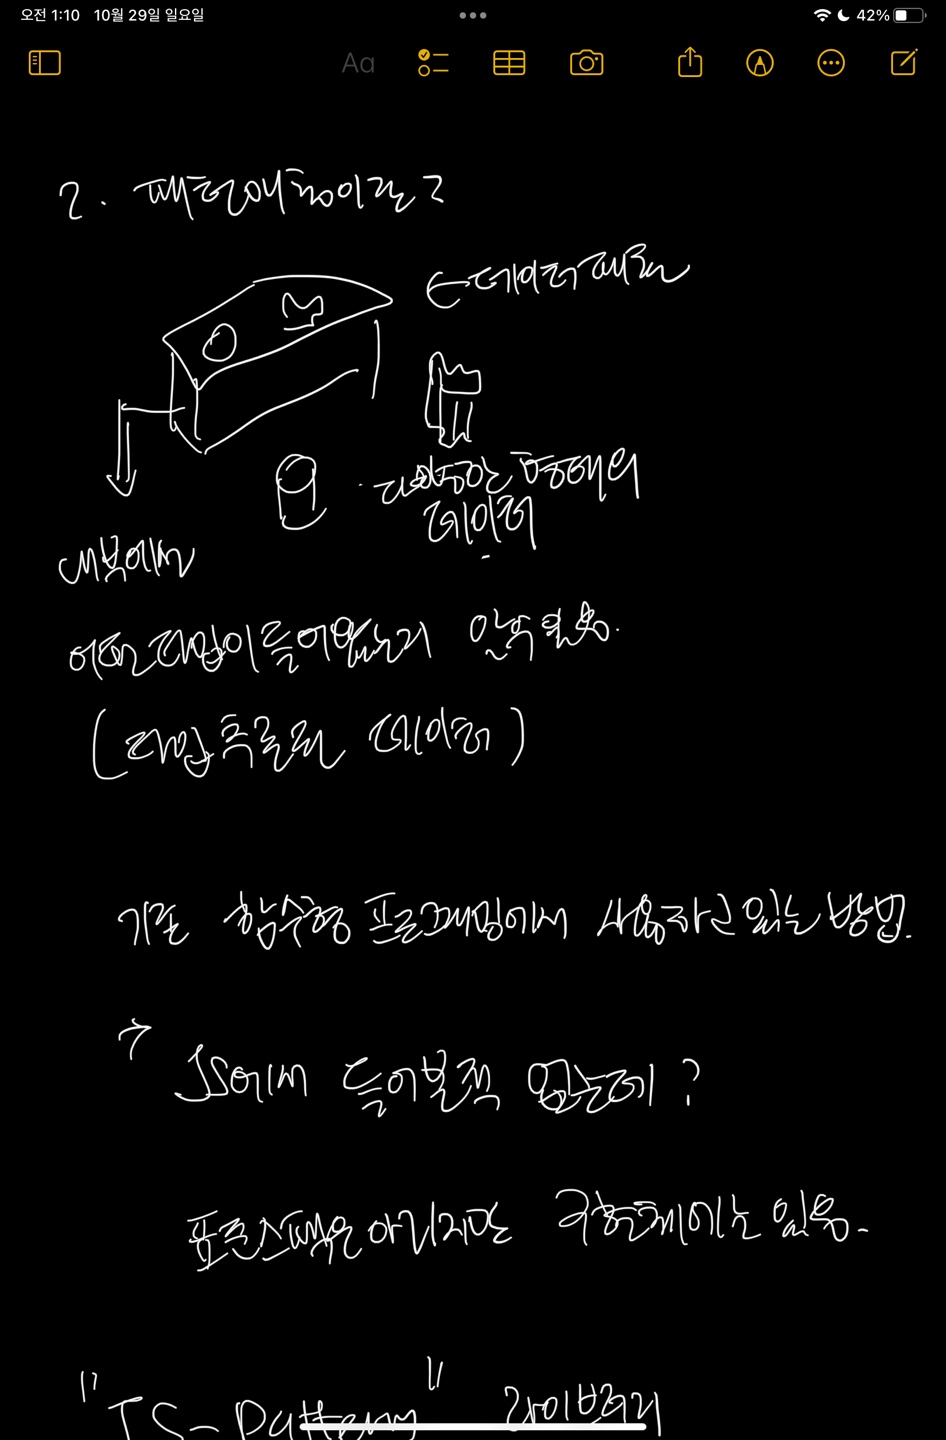 오전 1:10 10월 29일 일요일
42%
Aa
2. 패턴매칭이란?
← 데이터 패턴
다양한 형태의
데이터
내부에서
어떤 타입이 들어왔는지 알 수 있음.
(타입 추론된 데이터)
기존 함수형 프로그래밍에서 사용하고 있는 방법.
→
JS에서 들어본적 없는데?
표준스펙은 아니지만 구현체에는 있음.
"TS-Pattern" 라이브러리